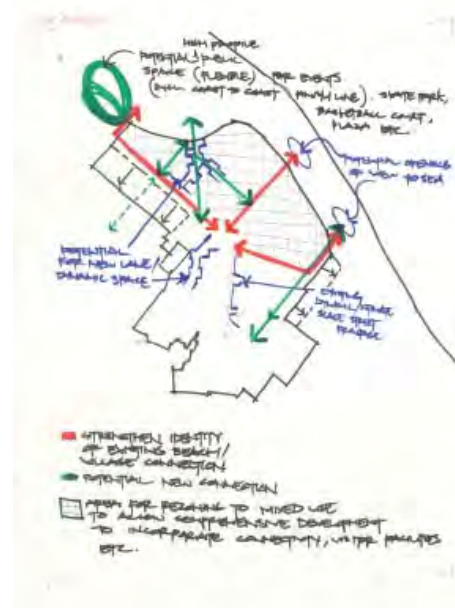 HIGH PROFILE
POTENTIAL PUBLIC
SPACE (FLEXIBLE) FOR EVENTS
COAST TO COAST FINISH LINE). SKATE PARK,
BASKETBALL COURT,
PLAZA ETC.
POTENTIAL OPENING
OF VIEW TO SEA
POTENTIAL
FOR NEW LANE/
DYNAMIC SPACE
EXISTING
SCALE STREET
FRONTAGE
STRENGTHEN IDENTITY
OF EXISTING BEACH/
VILLAGE CONNECTION
POTENTIAL NEW CONNECTION
AREA FOR REZONING TO MIXED USE
TO ALLOW COMPREHENSIVE DEVELOPMENT
TO INCORPORATE CONNECTIVITY, VISITOR FACILITIES
ETC.